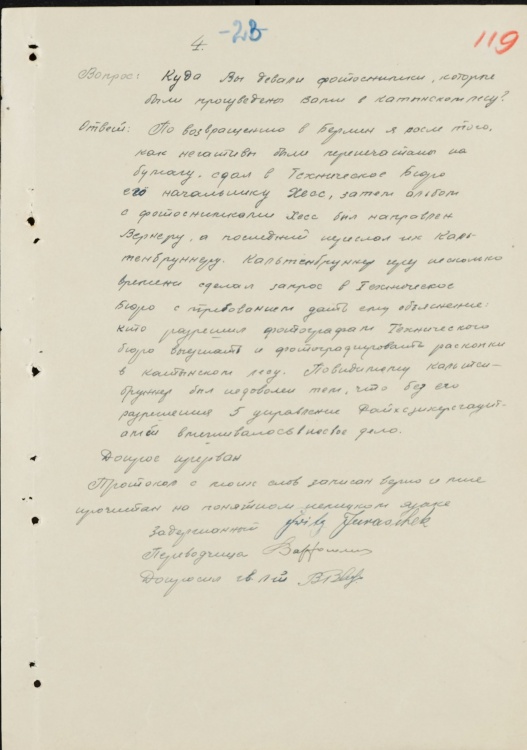 4.
-23-
119
Вопрос: Куда Вы девали фотоснимки, которые
были произведены вами в катынском лесу?
Ответ: По возвращению в Берлин я после того,
как негативы были перепечатаны на
бумагу, сдал в Техническое Бюро
его начальнику Хесс, затем альбом
с фотоснимками Хесс был направлен
Вернеру, а последний переслал их Каль-
тенбруннеру. Кальтенбруннер через несколько
времени сделал запрос в Техническое
Бюро с требованием дать ему объяснение:
кто разрешил фотографам Технического
бюро выезжать и фотографировать раскопки
в катынском лесу. Повидимому кальтен-
бруннер был недоволен тем, что без его
разрешения 5 управление
вмешивалось в дело.
Допрос прерван
Протокол с моих слов записан верно и мне
прочитан на понятном немецком языке
Задержанный Fritz
Переводчица
Допросил